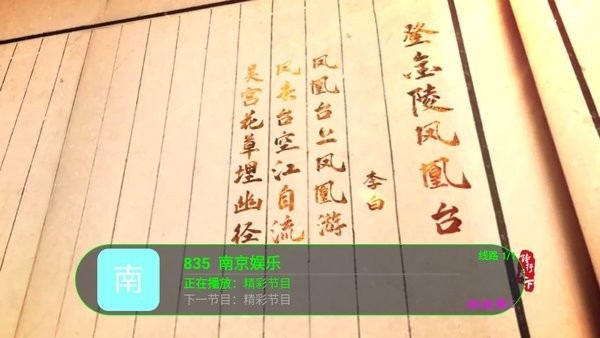 登金陵凤凰台
李白
凤凰台上凤凰游
凤去台空江自流
吴宫花草埋幽径
南
835 南京娱乐
线路 1/1
正在播放：精彩节目
下一节目：精彩节目